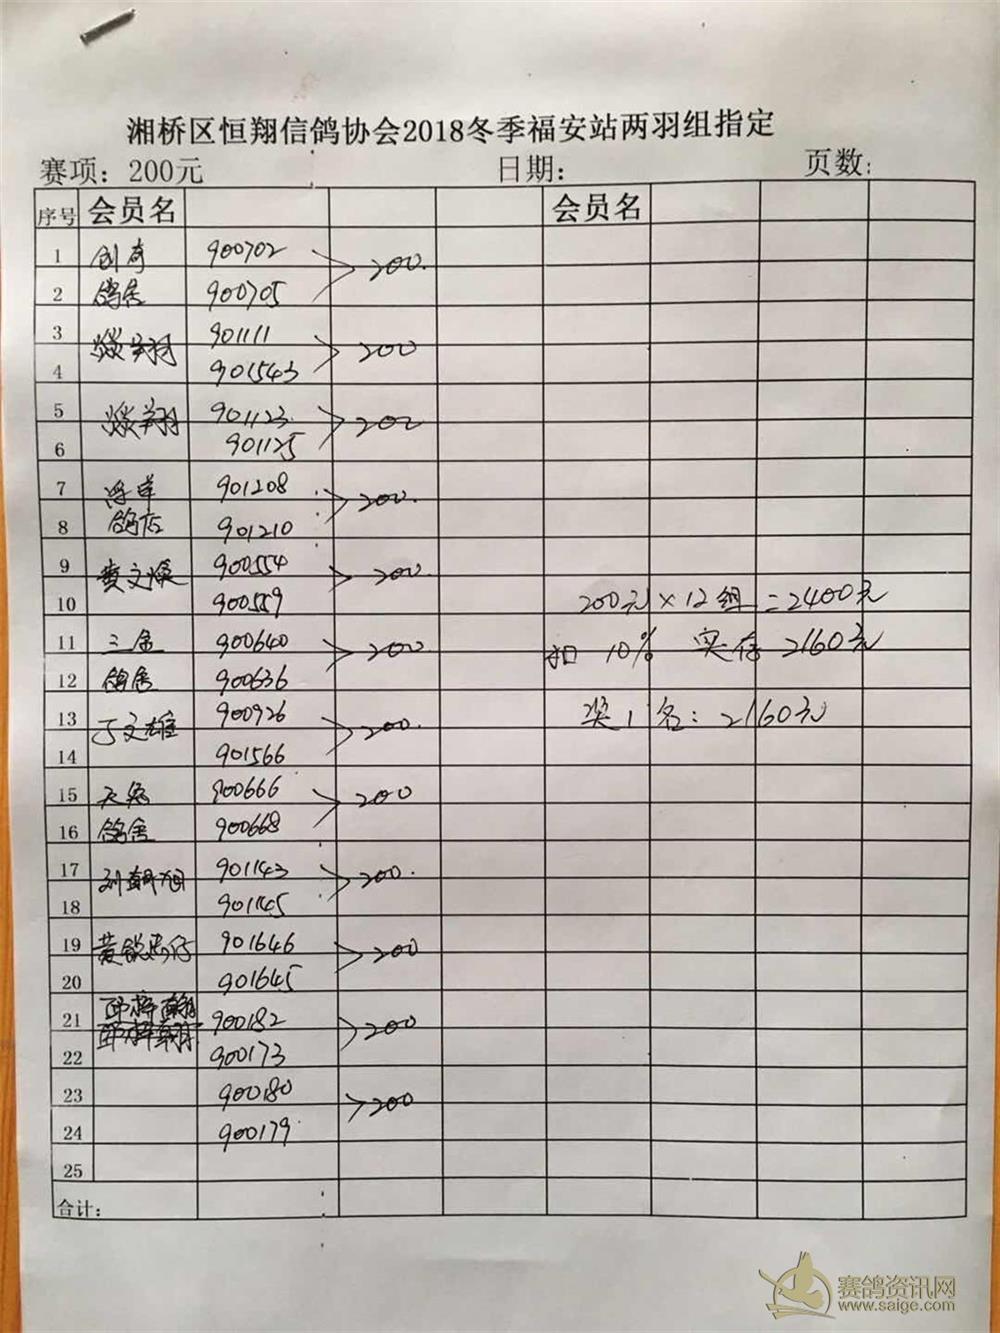 湘桥区恒翔信鸽协会2018冬季福安站两羽组指定
赛项：200元 日期： 页数：
序号 会员名 会员名
1 创奇 900702
200.
2 鸽舍 900705
3 901111
翔 200
4 901543
5 翔 901123
200
6 901125
7 901208
200.
8 鸽店 901210
9 900554
黄文焕 200.
10 900559
200元×12组=2400元
11 三金 900640
200
扣10% 实存2160元
12 鸽舍 900636
13 900926
丁文雄 200.
奖1名：2160元
14 901566
15 900666
200
16 鸽舍 900668
17 901143
刘朝旭 200.
18 901145
19 黄锐鸿仔 901646
200
20 901645
邱梓瀚
21 邱梓瀚 900182
200
22 900173
23 900180
200
24 900179
25
合计：
赛鸽资讯网
www.saige.com